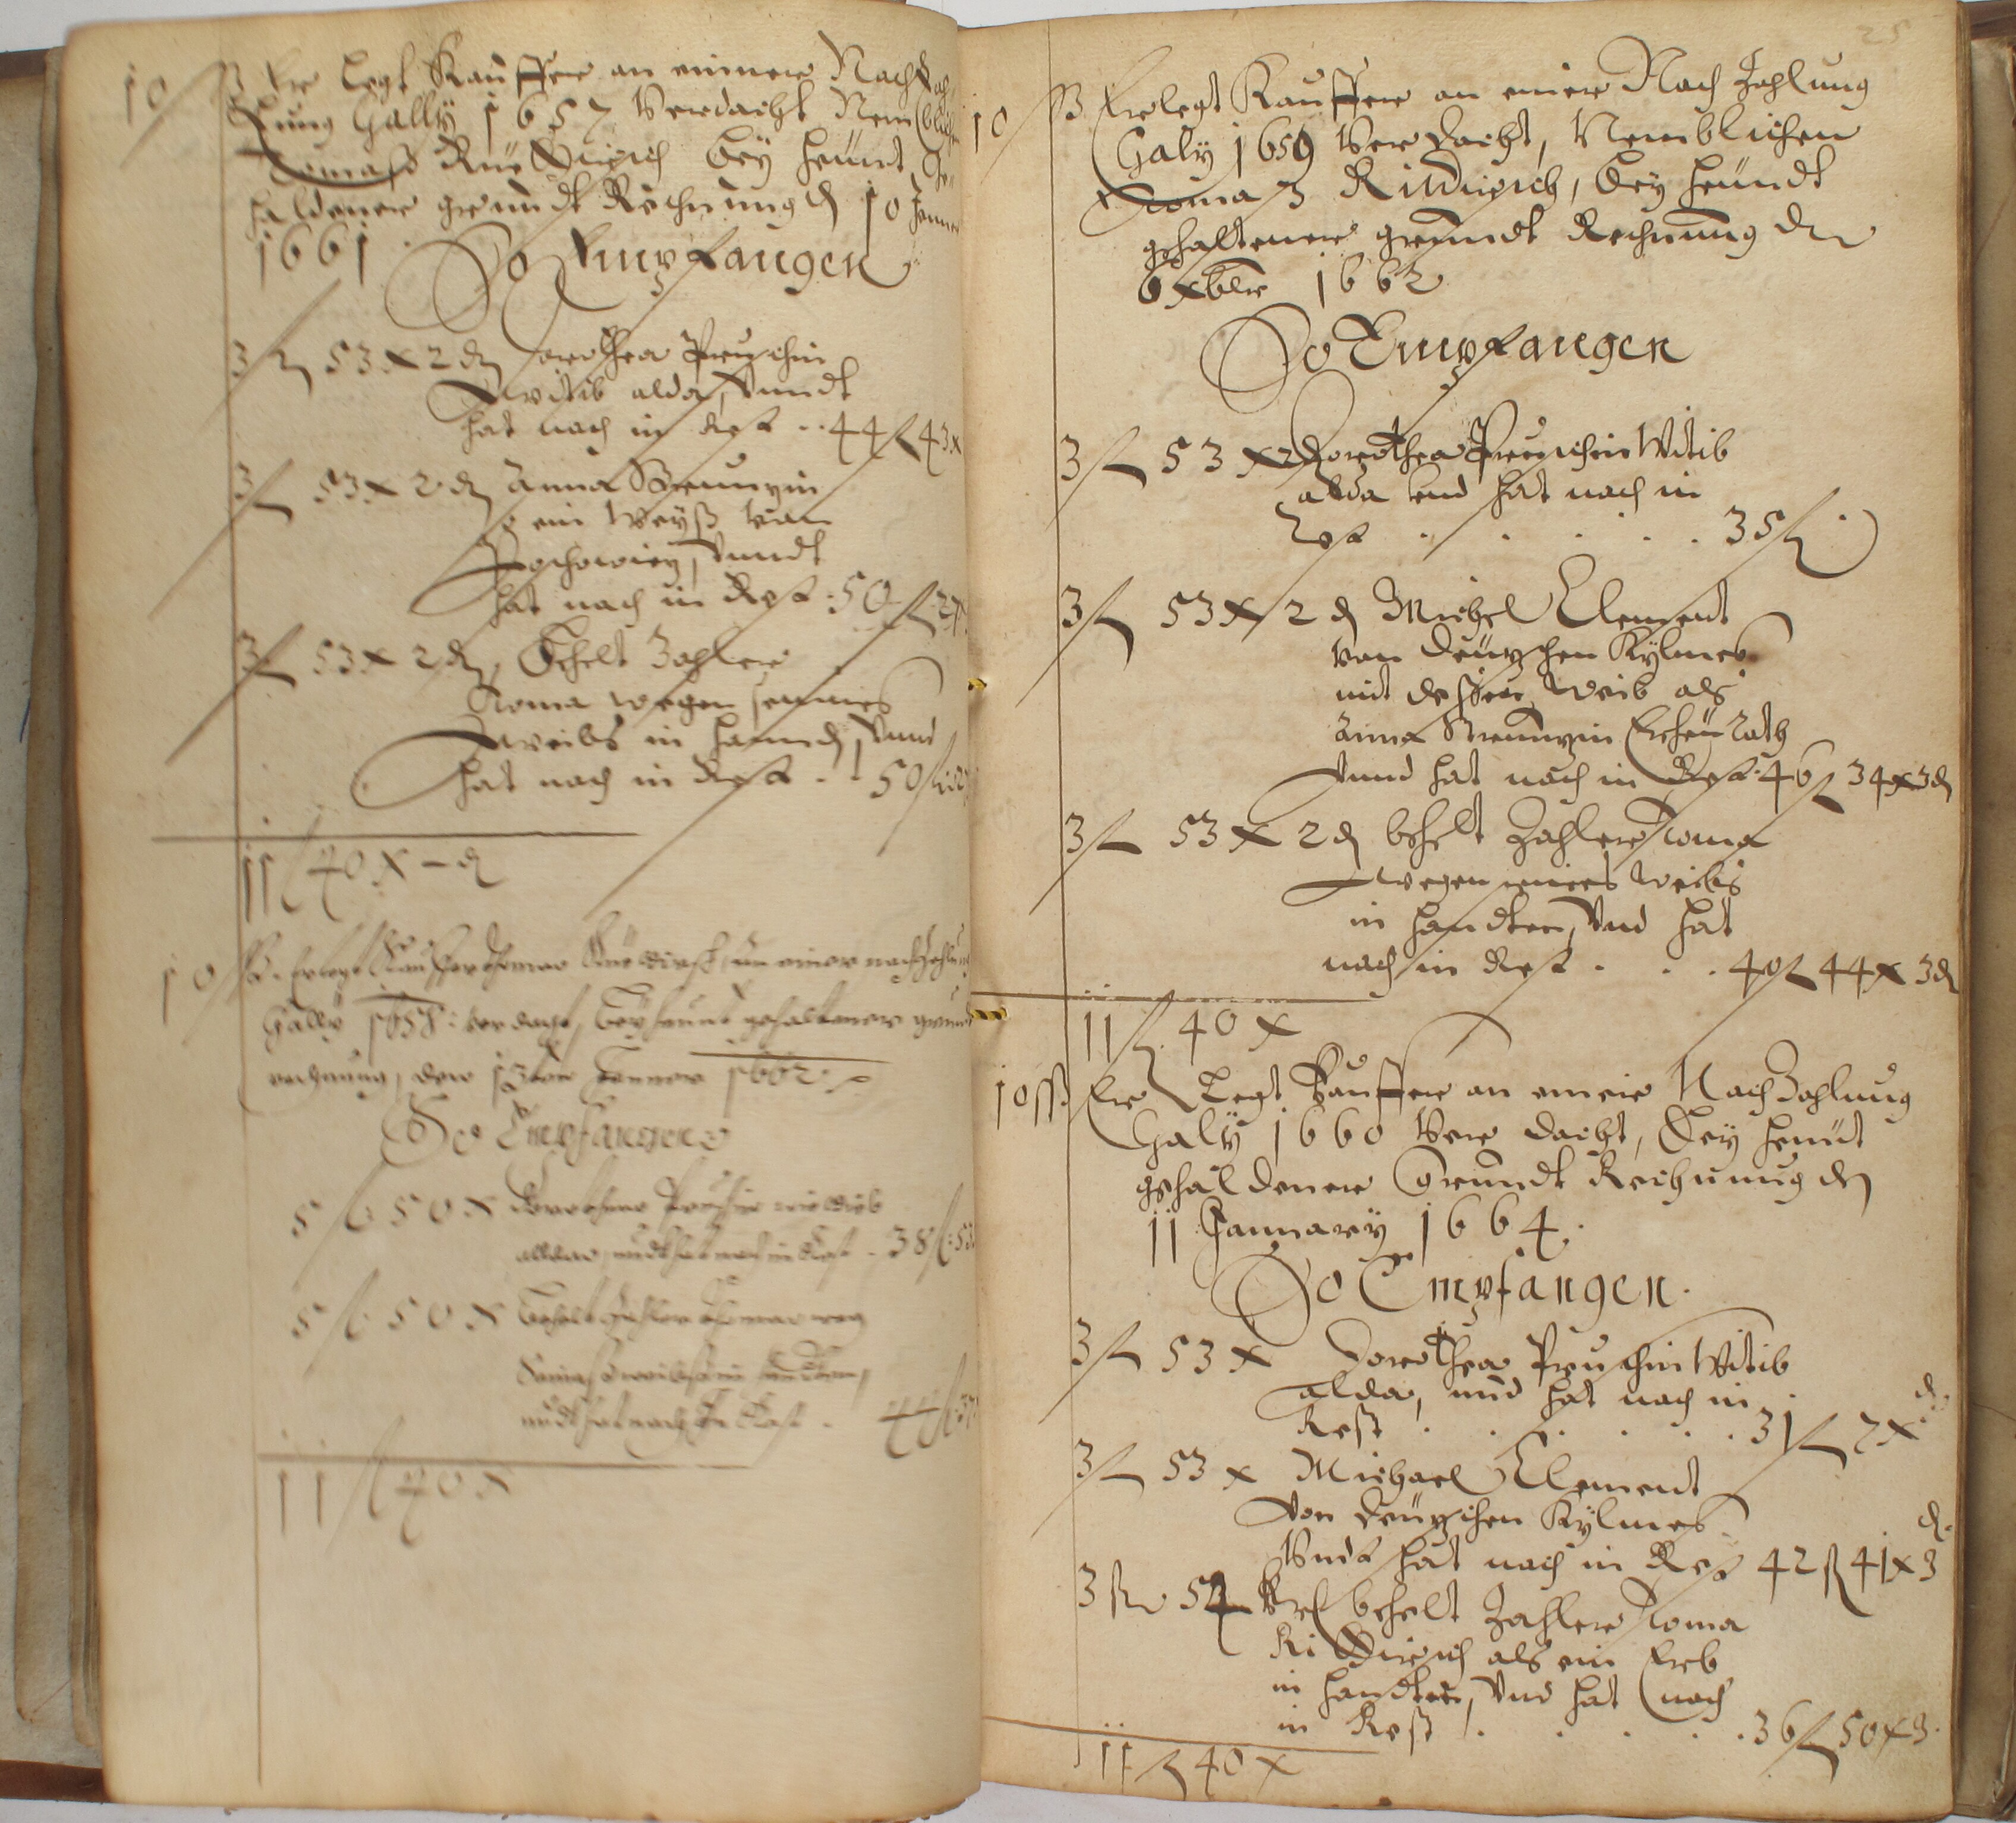 10 ß Er Legt Kauffer an einner Nach Zah
lung Gally 1657 Verdacht Nemblich
Tomaß Rudirich bey heunt Ge
haldener grundt Rechnung d 10 Jenner
1661
So Empfangen
3 fl 53 x 2 d Dorothea Preyschin
Witib alda, Vundt
hat nach in Rest .. 44 fl 43 x
3 fl 53 x 2 d Anna
ein Weyß van
Vundt
hat nach in Rest . 50 fl 27 x
3 fl 53 x 2 d, Behelt Zahler
Toma wegen seinnes
Weibs in hannd, Vund
hat nach in Rest . . 50 fl
11 fl 40 x — d
10 ß. Erlegt Kauffer Thomas an einer nachzahlung
Gally 1658: verdacht, bey heunt gehaltener grundt
rechnung, den 13ten Jenner 1662
So Empfangen
5 fl 50 x Dorothea wittib
alldar, undt hat nach in Rest . 38 fl: 53
5 fl 50 x Behelt Zahler Thomas weg
Seines weibs in
undt hat nach in Rest . 44 fl: 37
11 fl 40 x
25
10 ß Erlegt Kauffer an einer Nach Zahlung
Galy 1659 Verdacht, Nemblichen
Tomaß Ridirich, bey heundt
gehaltener grundt Rechnung den
6 xbler 1662
So Empfangen
3 fl 53 x 2 d Dorothea Preuschin Witib
alda und hat nach in
Rest . . . . . 35 fl .
3 fl 53 x 2 d Michel Element
van Deutschen Kylmes
mit dessen Weib als
Anna Erheurath
Vund hat nach in Rest . 46 fl 34 x 3 d
3 fl 53 x 2 d behelt Zahler Toma
wegen seines Weibs
in handten, Vnd hat
nach in Rest . . . 40 fl 44 x 3 d
11 fl 40 x
10 ß. Er Legt Kauffer an einer Nach Zahlung
Galy 1660 Ver dacht, bey heunt
gehaldener Grundt Rechnung den
11 January 1664.
So Empfangen.
3 fl 53 x Dorothea Preuschin Witib
alda, und hat nach in
Rest . . . . . 31 fl 7 x d.
3 fl 53 x Michael Element
Von Deutschen Kylmes
Vndt hat nach in Rest 42 fl 41 x 3 d.
3 fl 54 xr behelt Zahler Toma
Ridirich als ein Erb
in handten, Vnd hat nach
in Rest . . . . . 36 fl 50 x 3.
11 fl 40 x